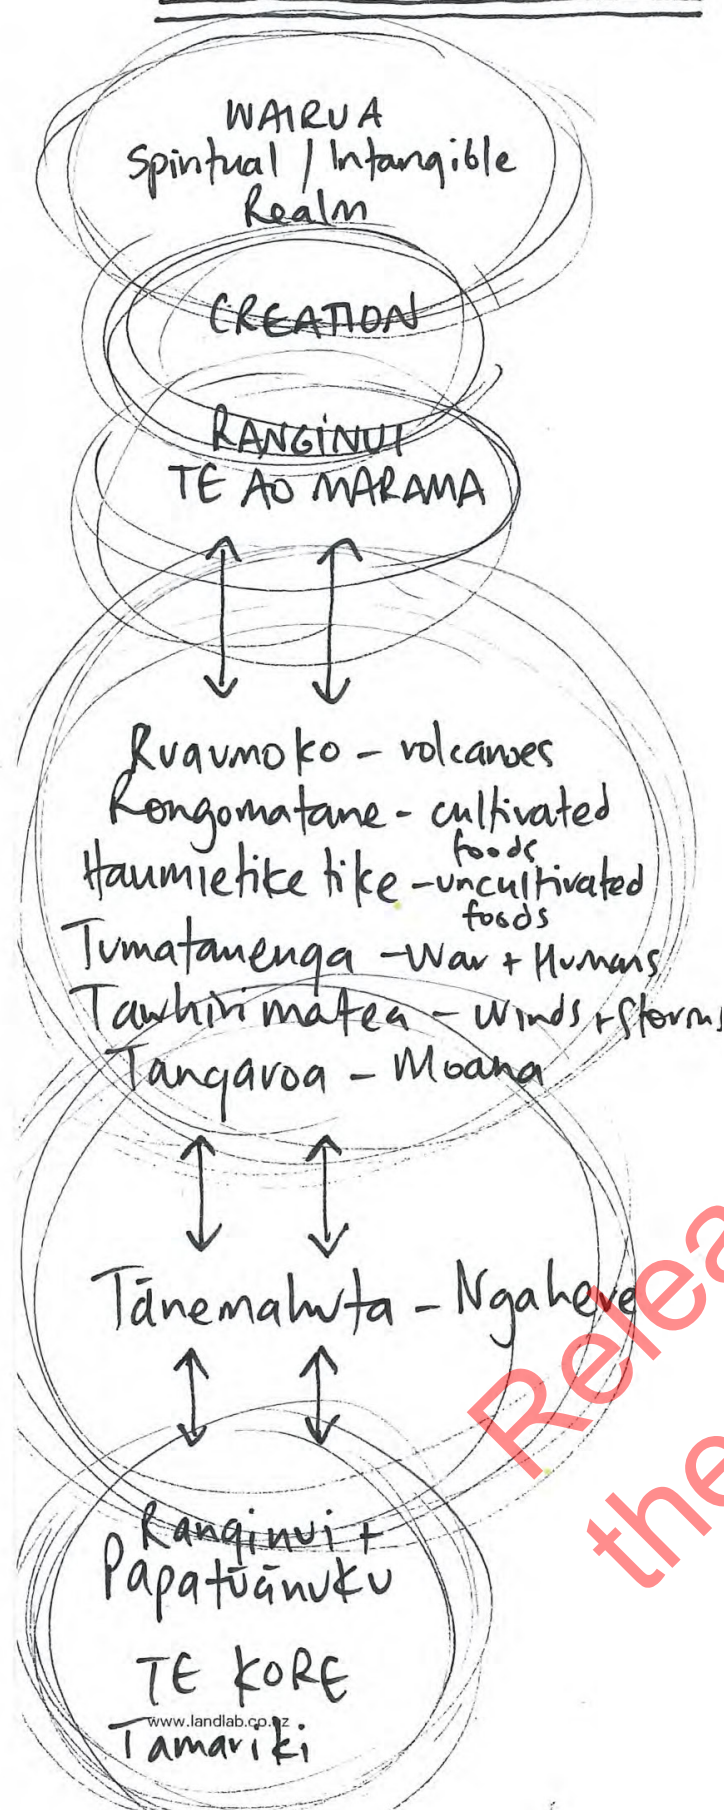 WAIRUA
Spiritual / Intangible
Realm
CREATION
RANGINUI
TE AO MARAMA
Ruaumoko - volcanoes
Rongomatane - cultivated
foods
Haumietike tike - uncultivated
foods
Tumatauenga - War + Humans
Tawhirimatea - Winds + Storms
Tangaroa - Moana
Tānemahuta - Ngahere
Ranginui +
Papatūānuku
TE KORE
www.landlab.co.nz
Tamariki
the